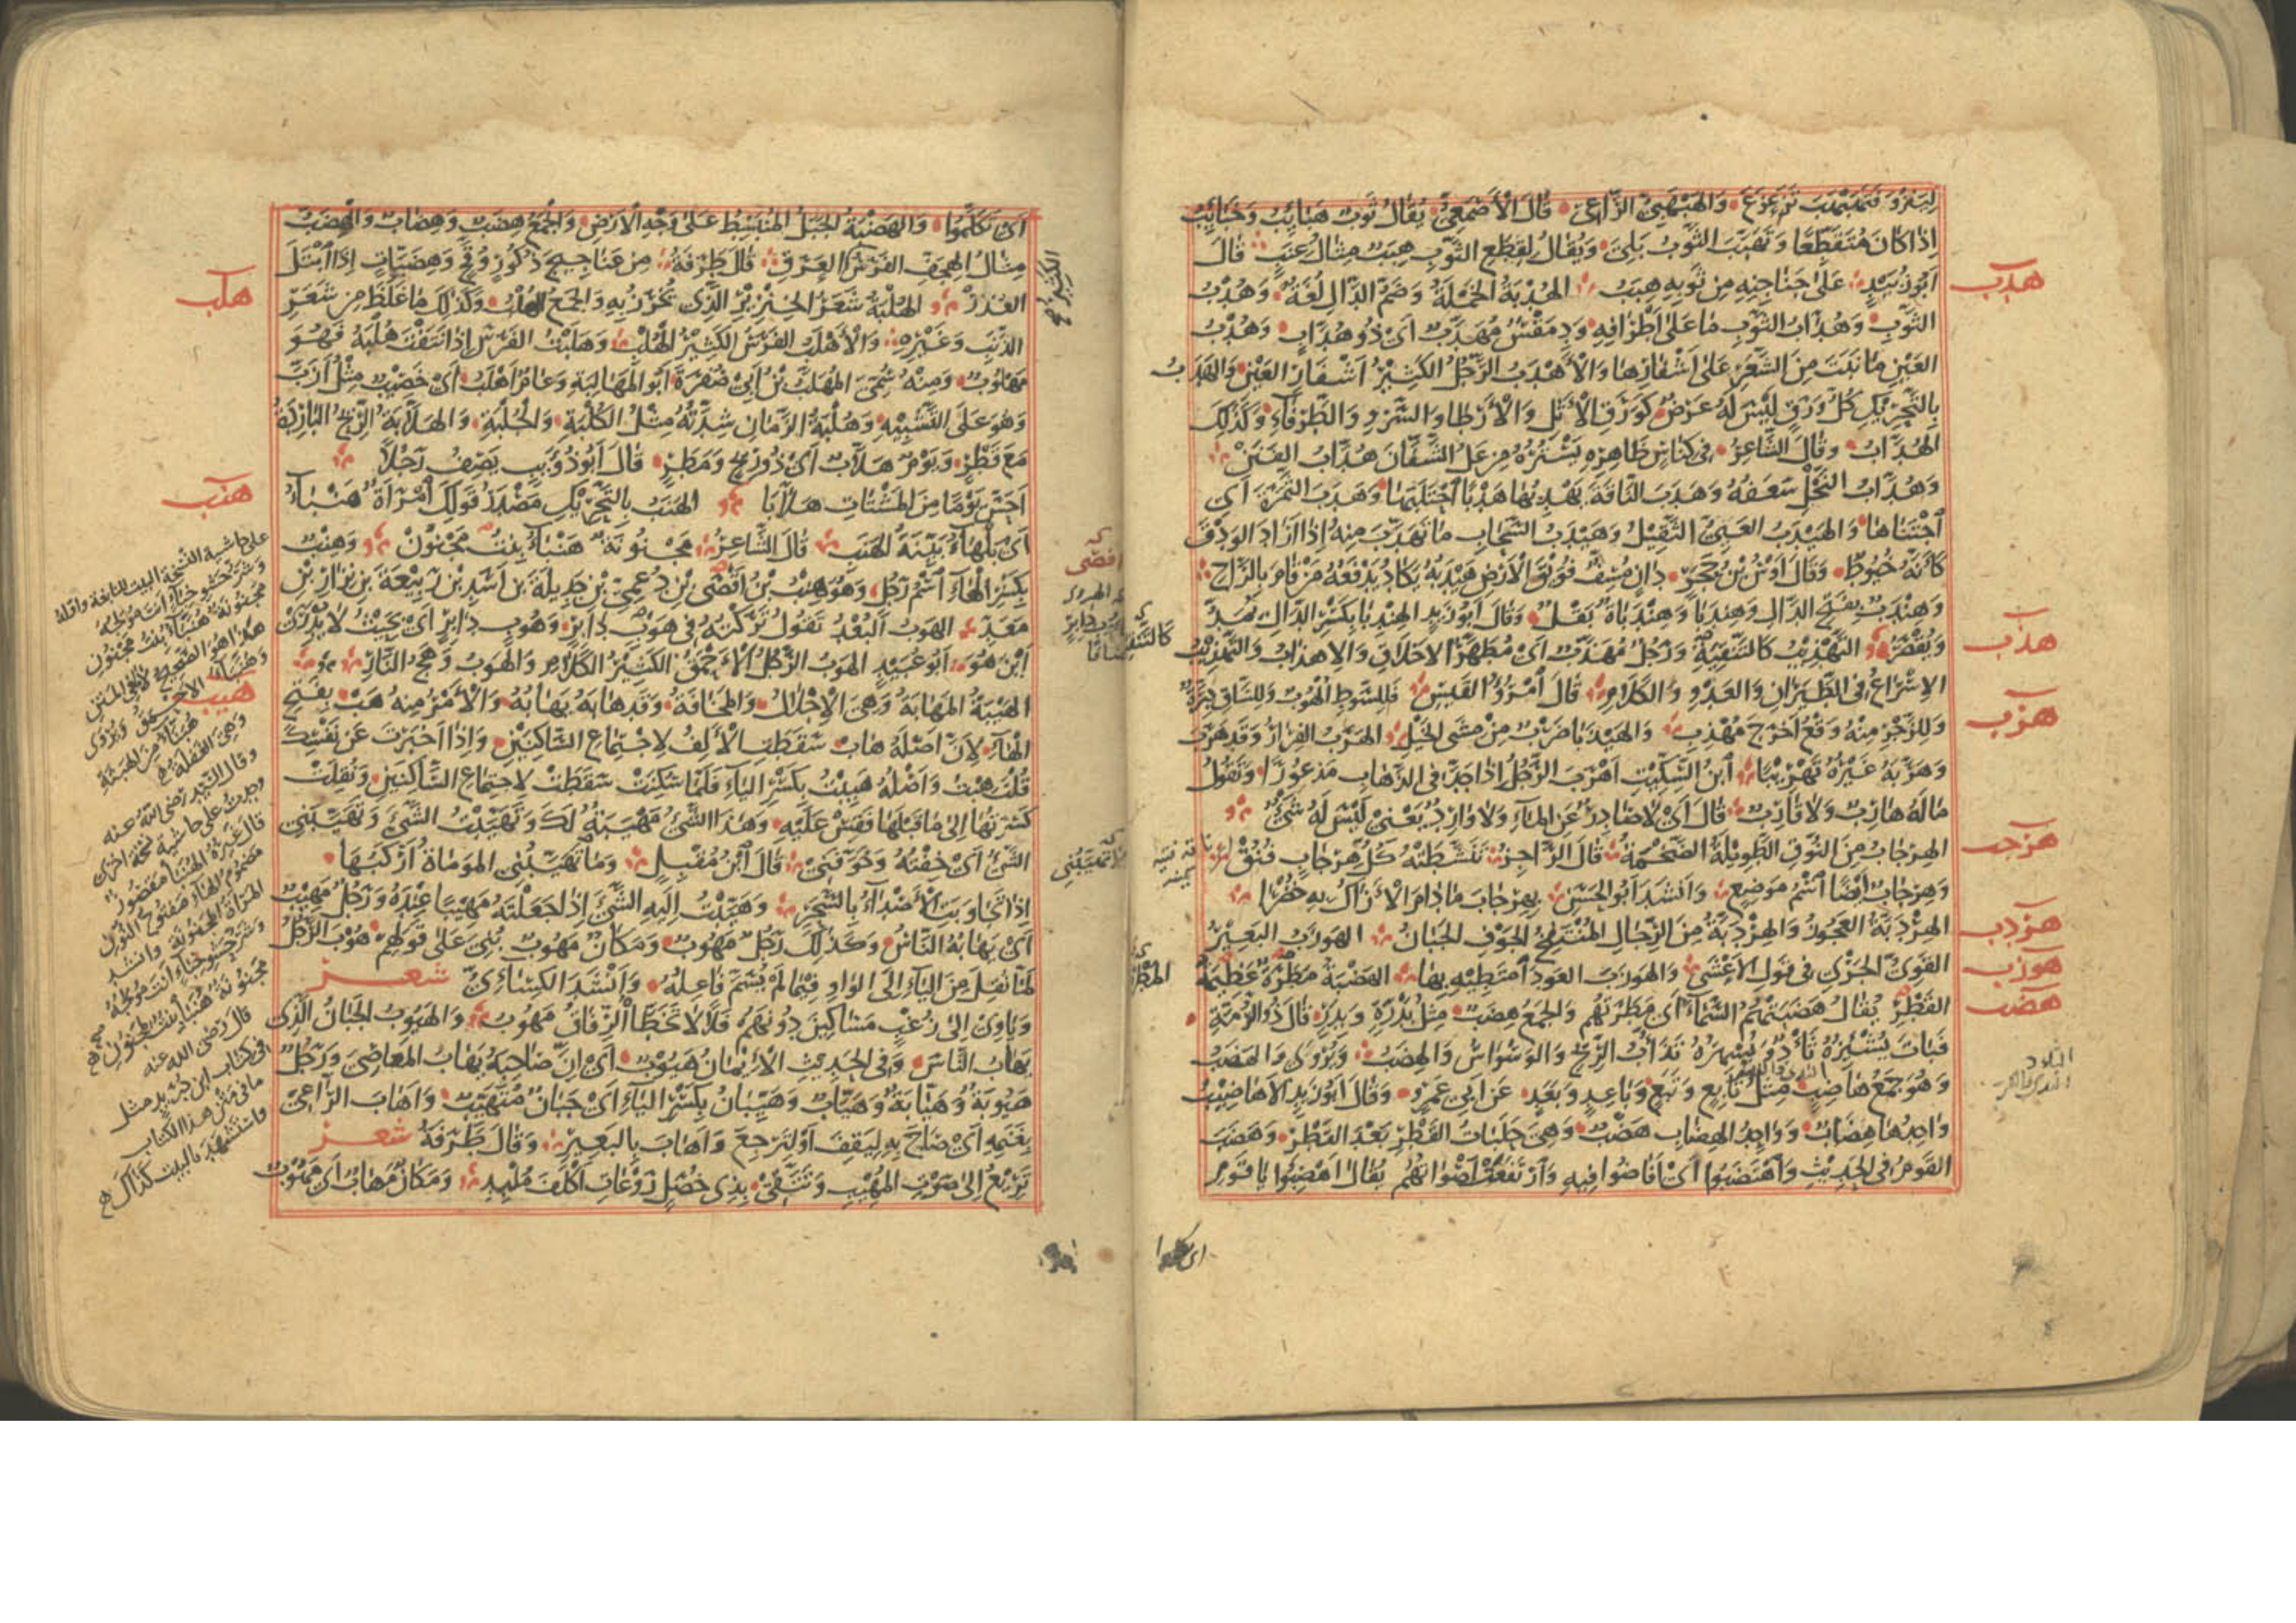 لِيَنْزُوَ فَتَهَبْهَبَ تَزَعْزَعَ وَالْهَبْهَبِيُّ الرَّاعِي قَالَ الْأَصْمَعِيُّ يُقَالُ ثَوْبٌ هَبَايِبُ وَخَبَايِبُ
إِذَا كَانَ مُتَقَطِّعًا وَتَهَبَّبَ الثَّوْبُ بَلِيَ وَيُقَالُ لِقِطَعِ الثَّوْبِ هِبَبٌ مِثَالُ عِنَبٍ قَالَ
هدب
أَبُو زُبَيْدٍ عَلَى جَنَاجِنِهِ مِنْ ثَوْبِهِ هِبَبُ الْهُدْبَةُ الْخَمْلَةُ وَضَمُّ الدَّالِ لُغَةٌ وَهُدْبُ
الثَّوْبِ وَهُدَّابُ الثَّوْبِ مَا عَلَى أَطْرَافِهِ وَدِمَقْسٌ مُهَدَّبٌ أَيْ ذُو هُدَّابٍ وَهُدْبُ
الْعَيْنِ مَا نَبَتَ مِنَ الشَّعْرِ عَلَى أَشْفَارِهَا وَالْأَهْدَبُ الرَّجُلُ الْكَثِيرُ أَشْفَارِ الْعَيْنِ وَالْهَدَبُ
بِالتَّحْرِيكِ كُلُّ وَرَقٍ لَيْسَ لَهُ عَرْضٌ كَوَرَقِ الْأَثْلِ وَالْأَرْطَا وَالسَّرْوِ وَالطَّرْفَاءِ وَكَذَلِكَ
الْهُدَّابُ وَقَالَ الشَّاعِرُ فِي كِنَاسٍ ظَاهِرٍ يَسْتُرُهُ مِنْ عَلُ الشَّفَّانَ هُدَّابُ الْفَنَنْ
وَهُدَّابُ النَّخْلِ سَعَفُهُ وَهَدَبَ النَّاقَةَ يَهْدِبُهَا هَدْبًا احْتَلَبَهَا وَهَدَبَ الثَّمَرَةَ أَيِ
اجْتَنَاهَا وَالْهَيْدَبُ الْعَيِيُّ الثَّقِيلُ وَهَيْدَبُ السَّحَابِ مَا تَهَدَّبَ مِنْهُ إِذَا أَرَادَ الْوَدْقَ
كَأَنَّهُ خُيُوطٌ وَقَالَ أَوْسُ بْنُ حَجَرٍ دَانٍ مُسِفٌّ فُوَيْقَ الْأَرْضِ هَيْدَبُهُ يَكَادُ يَدْفَعُهُ مَنْ قَامَ بِالرَّاحِ
وَهِنْدَبٌ بِفَتْحِ الدَّالِ وَهِنْدَبَا وَهِنْدَبَاةٌ بَقْلٌ وَقَالَ أَبُو زَيْدٍ الْهِنْدِبَا بِكَسْرِ الدَّالِ يُمَدُّ
هذب
وَيُقْصَرُ التَّهْذِيبُ كَالتَّنْقِيَةِ وَرَجُلٌ مُهَذَّبٌ أَيْ مُطَهَّرُ الْأَخْلَاقِ وَالْإِهْذَابُ وَالتَّهْذِيبُ
الْإِسْرَاعُ فِي الطَّيَرَانِ وَالْعَدْوِ وَالْكَلَامِ قَالَ امْرُؤُ الْقَيْسِ فَلِلسَّوْطِ أُلْهُوبٌ وَلِلسَّاقِ دِرَّةٌ
هرب
وَلِلزَّجْرِ مِنْهُ وَقْعُ أَخْرَجَ مُهْذِبِ وَالْهَيْذَبَا ضَرْبٌ مِنْ مَشْيِ الْخَيْلِ الْهَرَبُ الْفِرَارُ وَقَدْ هَرَبَ
وَهَرَّبَهُ غَيْرُهُ تَهْرِيبًا ابْنُ السِّكِّيتِ أَهْرَبَ الرَّجُلُ إِذَا جَدَّ فِي الذَّهَابِ مَذْعُورًا وَتَقُولُ
مَالَهُ هَارِبٌ وَلَا قَارِبٌ قَالَ أَيْ لَا صَادِرٌ عَنِ الْمَاءِ وَلَا وَارِدٌ يَعْنِي لَيْسَ لَهُ شَيْءٌ
هرجب
الْهِرْجَابُ مِنَ النُّوقِ الطَّوِيلَةُ الضَّخْمَةُ قَالَ الرَّاجِزُ تَنَشَّطَتْهُ كُلُّ هِرْجَابٍ فُنُقْ
وَهِرْجَابٌ أَيْضًا اسْمُ مَوْضِعٍ وَأَنْشَدَ أَبُو الْحَسَنِ بِهِرْجَابَ مَا دَامَ الْأَرَاكُ بِهِ خُضْرًا
هردب
الْهِرْدَبَّةُ الْعَجُوزُ وَالْهِرْدَبَّةُ مِنَ الرِّجَالِ الْمُنْتَفِخُ الْجَوْفِ الْجَبَانُ الْهَوْزَبُ الْبَعِيرُ
هوزب
الْقَوِيُّ الْجَرِيُّ فِي قَوْلِ الْأَعْشَى وَالْهَوْزَبَ الْعَوْدَ أَمْتَطِيهِ بِهَا الْهَضْبَةُ مَطْرَةٌ عَظِيمَةُ
هضب
الْقَطْرِ يُقَالُ هَضَبَتْهُمُ السَّمَاءُ أَيْ مَطَرَتْهُمْ وَالْجَمْعُ هِضَبٌ مِثْلُ بَدْرَةٍ وَبِدَرٍ قَالَ ذُو الرُّمَّةِ
فَبَاتَ يُشْئِزُهُ ثَأْدٌ وَيُسْهِرُهُ تَذَاؤُبُ الرِّيحِ وَالْوَسْوَاسُ وَالْهِضَبُ وَيُرْوَى وَالْهَضَبُ
وَهُوَ جَمْعُ هَاضِبٍ مِثْلُ تَابِعٍ وَتَبَعٍ وَبَاعِدٍ وَبَعَدٍ عَنْ أَبِي عَمْرٍو وَقَالَ أَبُو زَيْدٍ الْأَهَاضِيبُ
وَاحِدُهَا هِضَابٌ وَوَاحِدُ الْهِضَابِ هَضْبٌ وَهِيَ حَلَبَاتُ الْقَطْرِ بَعْدَ الْقَطْرِ وَهَضَبَ
الْقَوْمُ فِي الْحَدِيثِ وَاهْتَضَبُوا أَيْ أَفَاضُوا فِيهِ وَارْتَفَعَتْ أَصْوَاتُهُمْ يُقَالُ أَهْضِبُوا يَا قَوْمُ
أَيْ تَكَلَّمُوا وَالْهَضْبَةُ الْجَبَلُ الْمُنْبَسِطُ عَلَى وَجْهِ الْأَرْضِ وَالْجَمْعُ هِضَبٌ وَهِضَابٌ وَالْهِضَبُّ
مِثَالُ الْهِجَفِّ الْفَرَسُ الْكَثِيرُ الْعَرَقِ قَالَ طَرَفَةُ مِنْ عَنَاجِيجَ ذُكُورٍ وُقُحٍ وَهِضَبَّاتٍ إِذَا ابْتَلَّ
هلب
الْعُذَرْ الْهُلْبَةُ شَعَرُ الْخِنْزِيرِ الَّذِي يُخْرَزُ بِهِ وَالْجَمْعُ الْهُلْبُ وَكَذَلِكَ مَا غَلُظَ مِنْ شَعَرِ
الذَّنَبِ وَغَيْرِهِ وَالْأَهْلَبُ الْفَرَسُ الْكَثِيرُ الْهُلْبِ وَهَلَبْتُ الْفَرَسَ إِذَا نَتَفْتَ هُلْبَهُ فَهُوَ
مَهْلُوبٌ وَمِنْهُ سُمِّيَ الْمُهَلَّبُ بْنُ أَبِي صُفْرَةَ أَبُو الْمَهَالِبَةِ وَعَامٌ أَهْلَبُ أَيْ خَصِيبٌ مِثْلُ أَزَبَّ
وَهُوَ عَلَى التَّشْبِيهِ وَهُلْبَةُ الزَّمَانِ شِدَّتُهُ مِثْلُ الْكُلْبَةِ وَالْجُلْبَةِ وَالْهَلَّابَةُ الرِّيحُ الْبَارِدَةُ
مَعَ قَطْرٍ وَيَوْمٌ هَلَّابٌ أَيْ ذُو رِيحٍ وَمَطَرٍ قَالَ أَبُو ذُؤَيْبٍ يَصِفُ رَجُلًا
هنب
أَحَسَّ يَوْمًا مِنَ الْمَشْتَاتِ هَلَّابَا الْهَنَبُ بِالتَّحْرِيكِ مَصْدَرُ قَوْلِكَ امْرَأَةٌ هَنْبَاءُ
أَيْ بَلْهَاءُ بَيِّنَةُ الْهَنَبِ قَالَ الشَّاعِرُ مَجْنُونَةٌ هَنْبَاءُ بِنْتُ مَجْنُونْ وَهِنْبٌ
بِكَسْرِ الْهَاءِ اسْمُ رَجُلٍ وَهُوَ هِنْبُ بْنُ أَفْصَى بْنِ دُعْمِيِّ بْنِ جَدِيلَةَ بْنِ أَسَدِ بْنِ رَبِيعَةَ بْنِ نِزَارِ بْنِ
مَعَدٍّ الْهَوْبُ الْبُعْدُ تَقُولُ تَرَكْتُهُ فِي هَوْبِ دَابِرٍ وَهُوبِ دَابِرٍ أَيْ بِحَيْثُ لَا يُدْرَى
أَيْنَ هُوَ أَبُو عُبَيْدٍ الْهَوْبُ الرَّجُلُ الْأَحْمَقُ الْكَثِيرُ الْكَلَامِ وَالْهَوْبُ وَهَجُ النَّارِ
هيب
الْهَيْبَةُ الْمَهَابَةُ وَهِيَ الْإِجْلَالُ وَالْمَخَافَةُ وَقَدْ هَابَهُ يَهَابُهُ وَالْأَمْرُ مِنْهُ هَبْ بِفَتْحِ
الْهَاءِ لِأَنَّ أَصْلَهُ هَابْ سَقَطَتِ الْأَلِفُ لِاجْتِمَاعِ السَّاكِنَيْنِ وَإِذَا أَخْبَرْتَ عَنْ نَفْسِكَ
قُلْتَ هِبْتُ وَأَصْلُهُ هَيِبْتُ بِكَسْرِ الْيَاءِ فَلَمَّا سَكَنَتْ سَقَطَتْ لِاجْتِمَاعِ السَّاكِنَيْنِ وَنُقِلَتْ
كَسْرَتُهَا إِلَى مَا قَبْلَهَا فَقِسْ عَلَيْهِ وَهَذَا الشَّيْءُ مَهْيَبَةٌ لَكَ وَتَهَيَّبْتُ الشَّيْءَ وَتَهَيَّبَنِي
الشَّيْءُ أَيْ خِفْتُهُ وَخَوَّفَنِي قَالَ ابْنُ مُقْبِلٍ وَمَا تَهَيَّبُنِي الْمَوْمَاةُ أَرْكَبُهَا
إِذَا تَجَاوَبَتِ الْأَصْدَاءُ بِالسَّحَرِ وَهَيَّبْتُ إِلَيْهِ الشَّيْءَ إِذَا جَعَلْتَهُ مَهِيبًا عِنْدَهُ وَرَجُلٌ مَهِيبٌ
أَيْ يَهَابُهُ النَّاسُ وَكَذَلِكَ رَجُلٌ مَهُوبٌ وَمَكَانٌ مَهُوبٌ بُنِيَ عَلَى قَوْلِهِمْ هُوبَ الرَّجُلُ
لَمَّا نُقِلَ مِنَ الْيَاءِ إِلَى الْوَاوِ فِيمَا لَمْ يُسَمَّ فَاعِلُهُ وَأَنْشَدَ الْكِسَائِيُّ شعر
وَيَأْوِي إِلَى زُغْبٍ مَسَاكِينَ دُونَهُمْ فَلًا لَا تَخَطَّاهُ الرِّفَاقُ مَهُوبُ وَالْهَيُوبُ الْجَبَانُ الَّذِي
يَهَابُ النَّاسَ وَفِي الْحَدِيثِ الْإِيمَانُ هَيُوبٌ أَيْ إِنَّ صَاحِبَهُ يَهَابُ الْمَعَاصِيَ وَرَجُلٌ
هَيُوبَةٌ وَهَيَّابَةٌ وَهَيَّابٌ وَهَيِّبَانٌ بِكَسْرِ الْيَاءِ أَيْ جَبَانٌ مُتَهَيِّبٌ وَأَهَابَ الرَّاعِي
بِغَنَمِهِ أَيْ صَاحَ بِهِ لِيَقِفَ أَوْ لِتَرْجِعَ وَأَهَابَ بِالْبَعِيرِ وَقَالَ طَرَفَةُ شعر
تَرِيعُ إِلَى صَوْتِ الْمُهِيبِ وَتَتَّقِي بِذِي خُصَلٍ رَوْعَاتِ أَكْلَفَ مُلْبِدِ وَمَكَانٌ مَهَابٌ أَيْ مَهُوبٌ
على حاشية النسخة البيت للنابغة واوله
مجنونة هنباء بنت مجنون
هكذا هو الصحيح
وجدت على حاشية نسخة اخرى
قال رضى الله عنه
فى كتاب ابن دريد مثل
ما فى متن هذا الكتاب
واستشهد بالبيت كذلك